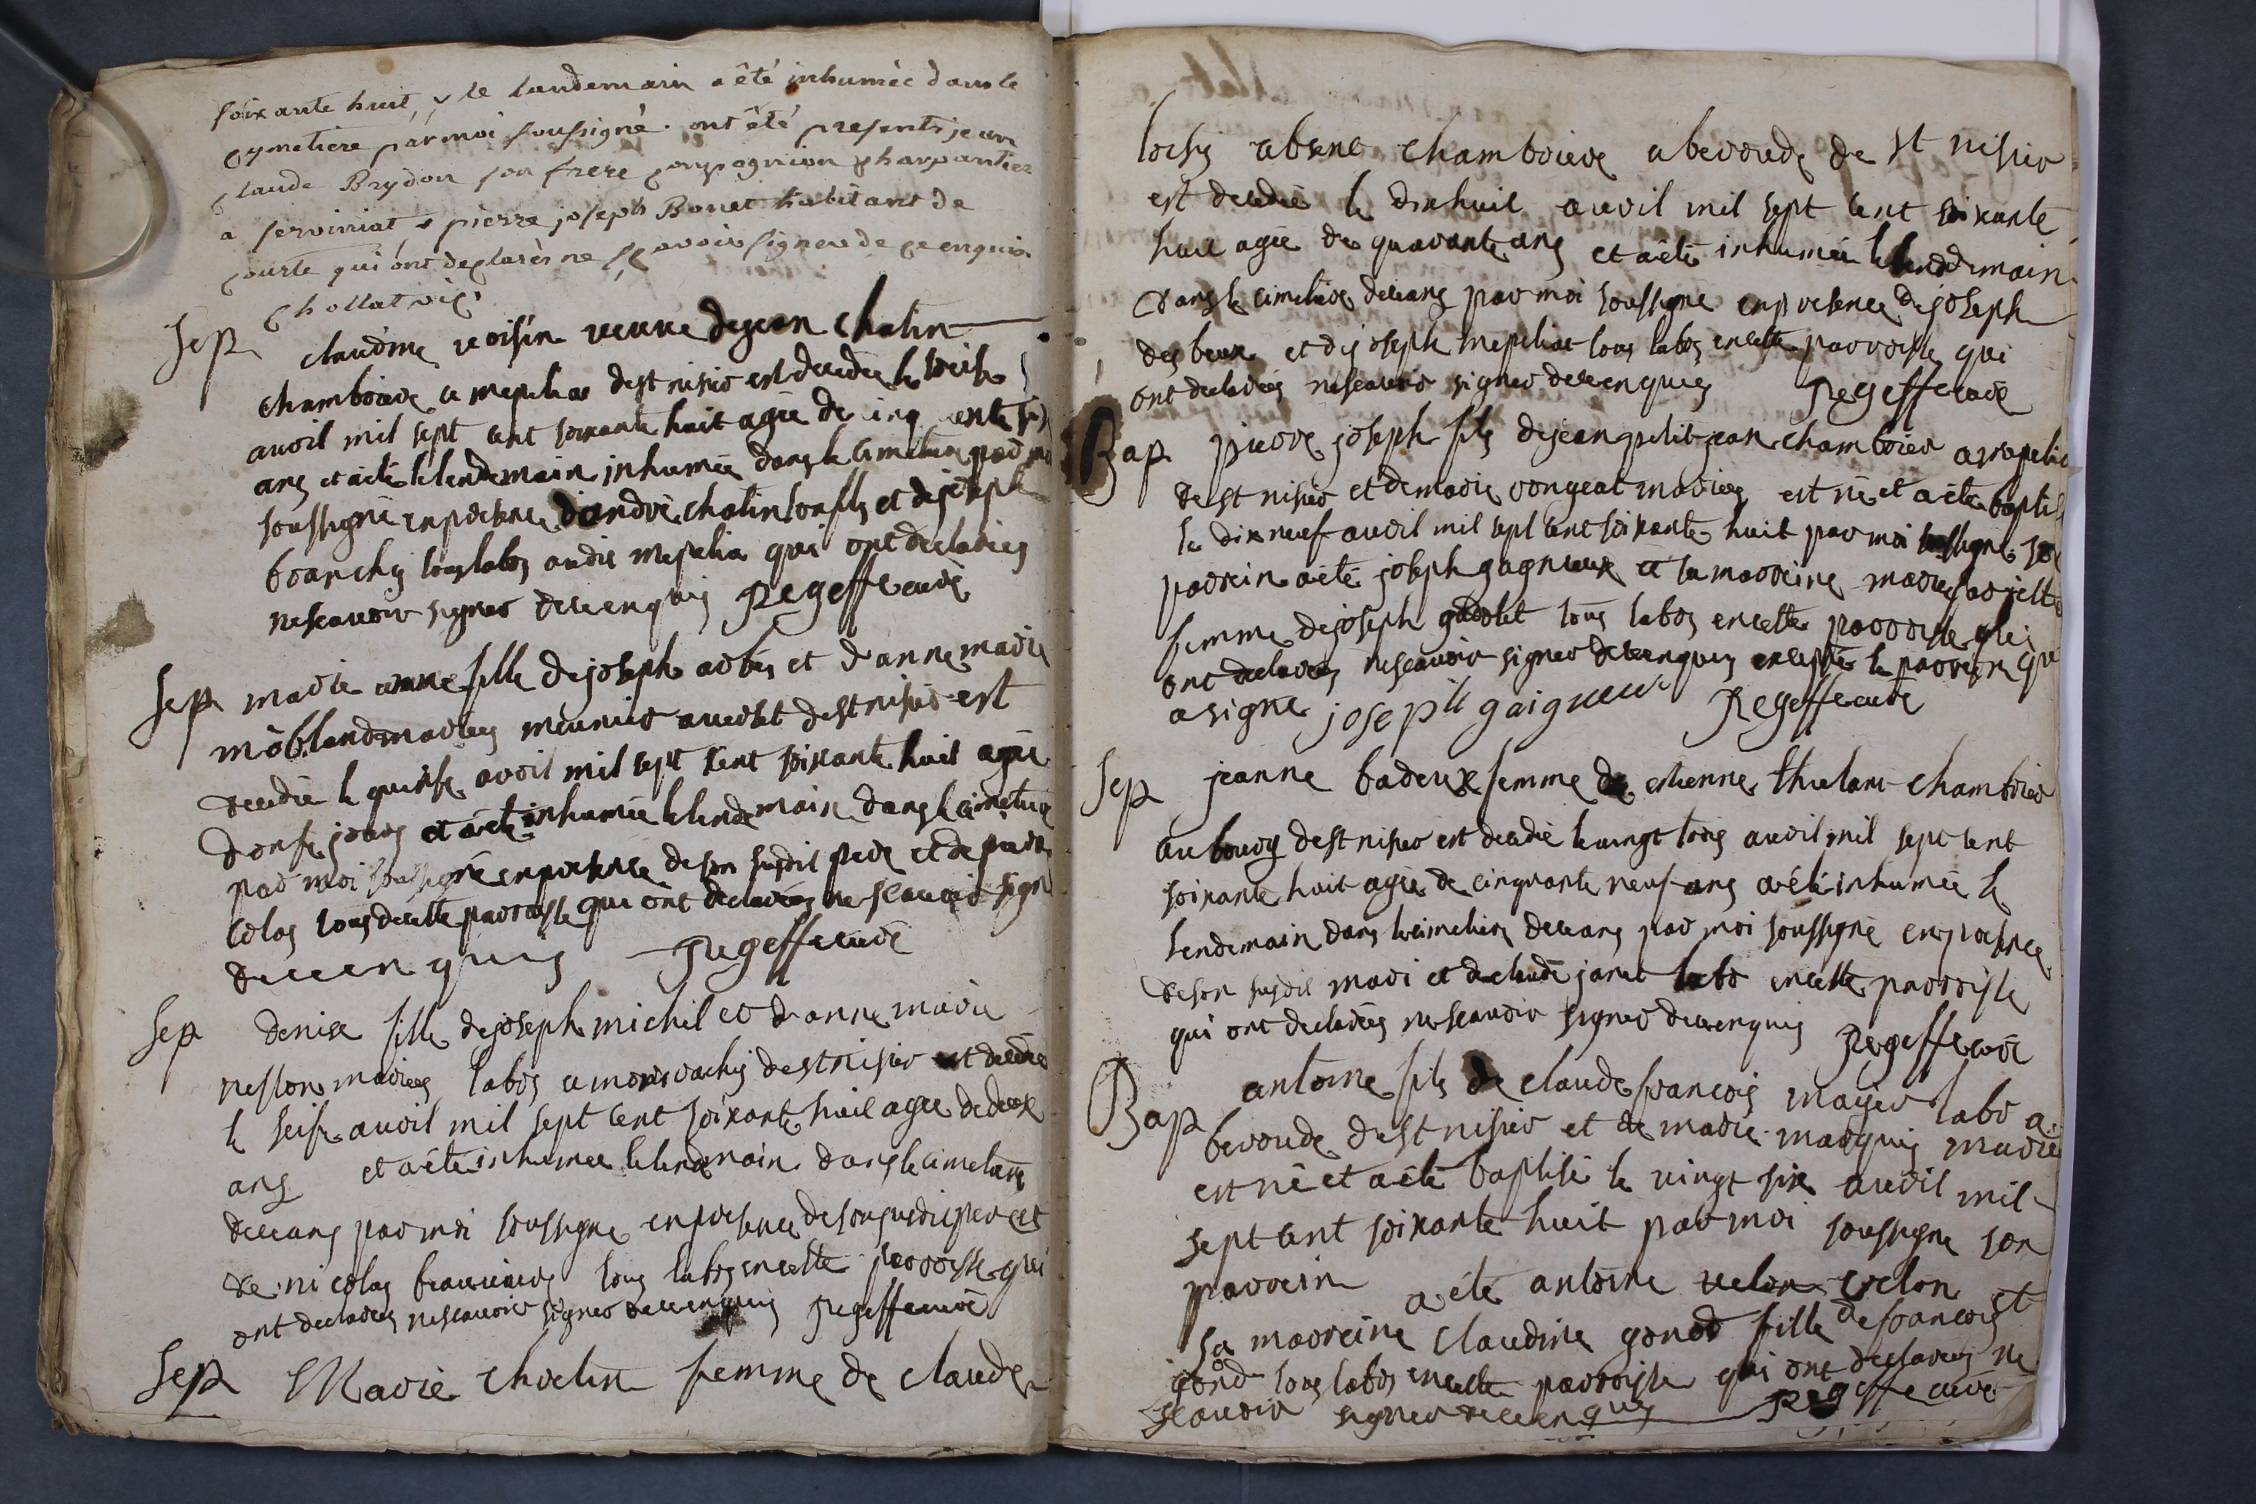 soixante huit, & le landemain a êté inhumée dans le
cymetiere par moi soussigné. ont êté presents jean
claude Brydon son frere compagnion charpantier
a serviniat & pierre joseph Bonet habitant de
courte qui ont declarés ne sçavoir signer de ce enquis
Chollat vic.
Sep claudine voisin veuve de jean chatin
chamboire a mepilia de st nisier est decedée le treise
avril mil sept cent soixante huit agée de cinquente six
ans et a été le lendemain inhumée dans le cimetiere par moi
soussigné en presence d'andré chatin son fils et de joseph
branchy tous labrs audit mepilia qui ont declarés
ne scavoir signer de ce enquis Regeffe curé
Sep marie anne fille de joseph arbés et d'anne marie
moblond mariés meunier a de st nisier est
decedée le quinse avril mil sept cent soixante huit agée
d'onse jours et a été inhumée le lendemain dans le cimetiere
par moi soussigné en presence de son susdit pere et de pierre
colas tous de cette parroisse qui ont declarés ne scavoir signer
de ce enquis Regeffe curé
Sep denise fille de joseph michel et d'anne marie
neston mariés labrs a de st nisier est decedée
le seise avril mil sept cent soixante huit agée de deux
ans et a été inhumée le lendemain dans le cimetiere
de ceans par moi soussigné en presence de son susdit pere et
de nicolas tous labrs en cette parroisse qui
ont declarés ne scavoir signer de ce enquis Regeffe curé
Sep Marie chvelin femme de claude
loisy chamboire a beroude de st nisier
est decedée le dixhuit avril mil sept cent soixante
huit agée de quarante ans et a été inhumée le lendemain
dans le cimetiere de ceans par moi soussigné en presence de joseph
desbeux et de joseph mepiliat tous labrs en cette parroisse qui
ont declarés ne scavoir signer de ce enquis Regeffe curé
Bap pierre joseph fils de jean petitjean chamboire a mepilia
de st nisier et de marie rongeat mariés est né et a été baptisé
le dixneuf avril mil sept cent soixante huit par moi soussigné son
parrein a été joseph gagnieux et sa marreine marie
femme de joseph tous labrs en cette parroisse qui
ont declarés ne scavoir signer de ce enquis excepté le parrein qui
a signé joseph gaigneux Regeffe curé
Sep jeanne badoux femme de estienne thielant chamboire
au bourg de st nisier est decedée le vingt trois avril mil sept cent
soixante huit agée de cinquante neuf ans a été inhumée le
lendemain dans le cimetiere de ceans par moi soussigné en presence
de son susdit mari et de claude janet labr en cette parroisse
qui ont declarés ne scavoir signer de ce enquis Regeffe curé
Bap antoine fils de claude francois mayer labr a
beroude de st nisier et de marie marquis mariés
est né et a été baptisé le vingt six avril mil
sept cent soixante huit par moi soussigné son
parrein a été antoine velon velon et
sa marreine claudine gonod fille de francois
gonod tous labrs en cette parroisse qui ont declarés ne
scavoir signer de ce enquis Regeffe curé